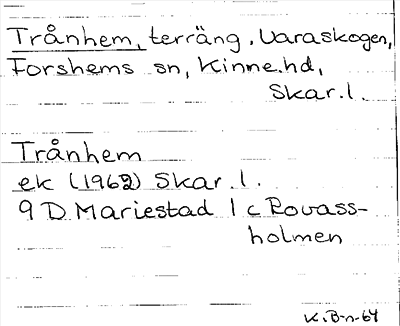 Trånhem, terräng, Varaskogen,
Forshems sn, Kinne.hd,
Skar.l.
Trånhem
ek (1962) Skar.l.
9 D Mariestad 1 c Rovass-
holmen
K.B-n-64